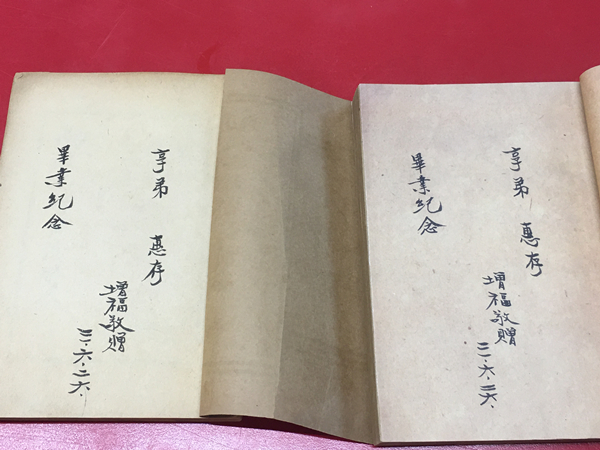 享弟 惠存
畢業紀念
增福敬贈
三·六·二六·
享弟 惠存
畢業紀念
增福敬贈
三·六·二六·